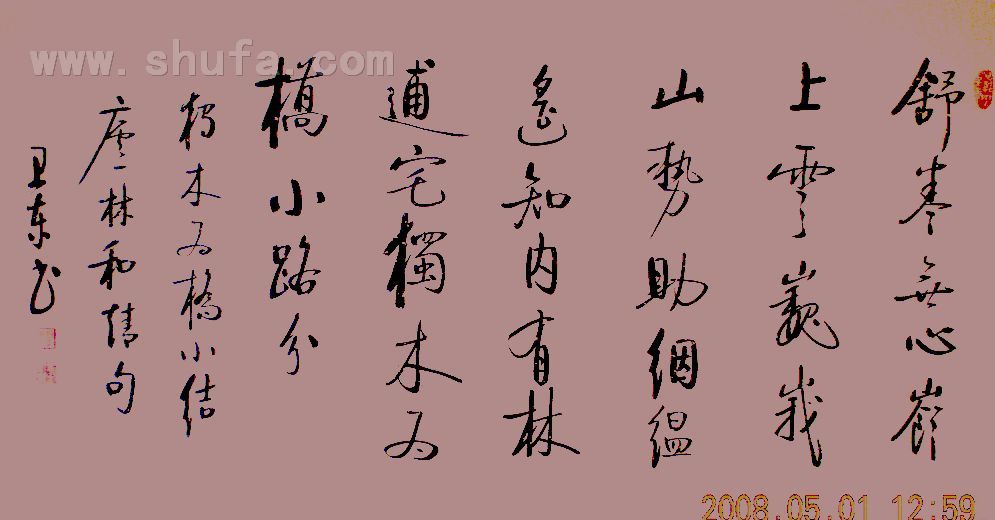 舒卷無心嶺
上雲巍峩
山勢助絪縕
遙知内有林
逋宅獨木为
橋小路分
獨木为橋小
林和靖句
卫东书
www.shufa.com
2008.05.01 12:59